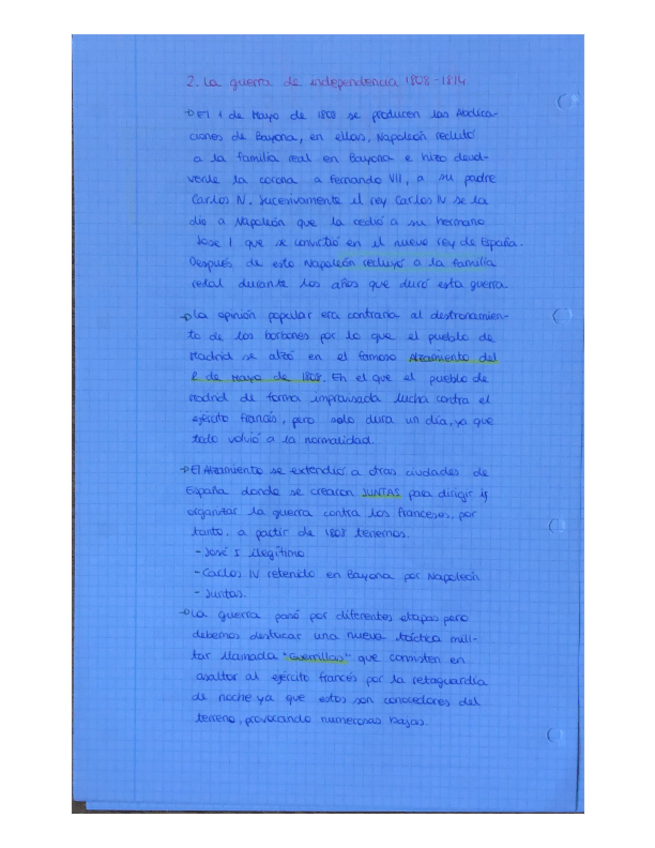 2. La guerra de independencia 1808-1814
→ El 1 de Mayo de 1808 se producen las Abdica-
ciones de Bayona, en ellas, Napoleón reclutó
a la familia real en Bayona e hizo devol-
verle la corona a Fernando VII, a su padre
Carlos IV. Sucesivamente el rey Carlos IV se la
dio a Napoleón que la cedió a su hermano
Jose I que se convirtió en el nuevo rey de España.
Después de esto Napoleón recluyó a la familia
real durante los años que duró esta guerra.
→ La opinión popular era contraria al destronamien-
to de los borbones por lo que el pueblo de
Madrid se alzó en el famoso Alzamiento del
2 de Mayo de 1808. En el que el pueblo de
Madrid de forma improvisada lucha contra el
ejército francés, pero solo dura un día, ya que
todo volvió a la normalidad.
→ El Alzamiento se extendió a otras ciudades de
España donde se crearon JUNTAS para dirigir y
organizar la guerra contra los franceses, por
tanto, a partir de 1808 tenemos.
- José I ilegítimo
- Carlos IV retenido en Bayona por Napoleón
- Juntas.
→ La guerra pasó por diferentes etapas pero
debemos destacar una nueva táctica mili-
tar llamada "Guerrillas" que consisten en
asaltar al ejército francés por la retaguardia
de noche ya que estos son conocedores del
terreno, provocando numerosas bajas.